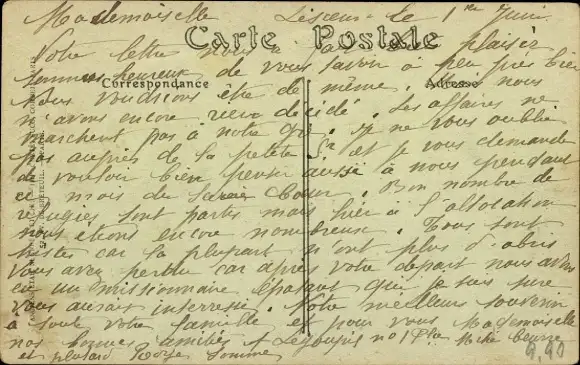 Mademoiselle Lisieux le 1er Juin
Carte Postale
Votre lettre nous a fait plaisir
sommes heureux de vous savoir à peu près bien
Correspondance Adresse
nous voudrions être de même. Mais nous
n'avons encore rien décidé. Les affaires ne
marchent pas à notre gré. Je ne vous oublie
pas auprès de la petite Sr et je vous demande
de vouloir bien penser aussi à nous pendant
ce mois du Sacré Coeur. Bon nombre de
refugiés sont partis mais hier à l'allocation
nous étions encore nombreux. Tous sont
tristes car la plupart n'ont plus d'abris
Vous avez perdu car après votre depart nous avons
eu un missionnaire épatant que je suis sure
vous aurait interressé. Notre meilleur souvenir
à toute votre famille et pour vous Mademoiselle
nos bonnes amitiés
et plutard Somme
9,90